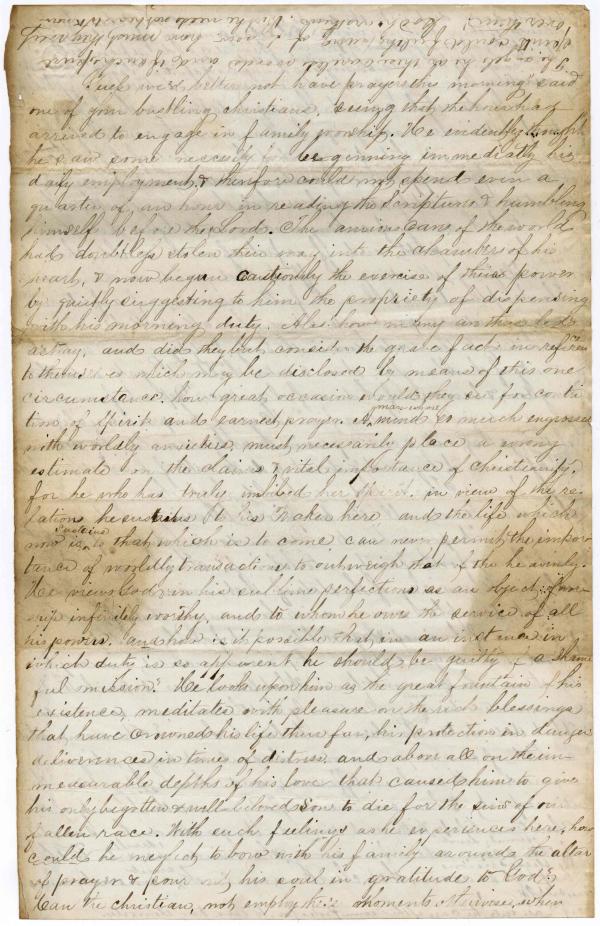 "I guess we'd better not have prayers this morning" said
one of your bustling christians, seeing that the hour had
arrived to engage in family worship. He evidently thought
he saw some necessity for beginning immediatly his
daily employment, & therefore could not spend even a
quarter of an hour in reading the Scriptures & humbling
himself before the Lord. The anxious cares of the world
had doubtless stolen their way into the chamber of his
heart, & now began cautiously the exercise of their power
by quietly suggesting to him the propriety of dispensing
with his morning duty. Alas how many are thus led
astray, and did they but consider the grave fact in reference
to themselves which may be disclosed by means of this one
circumstance, how great occasion would they see for contri
tion of spirit and earnest prayer. A man whose mind is so much engrossed
with worldly anxieties, must necessarily place a wrong
estimate on the claims & vital importance of christianity.
for he who has truly imbibed her spirit, in view of the re-
lation he sustains to his Maker here and the life which
now is sustains to that which is to come can never permit the impor
tance of worldly transactions to outweigh that of the heavenly.
He views God in his sublime perfections as an object of wor
ship infinitely worthy, and to whom he owes the service of all
his powers. and how is it possible that in an instance in
which duty is so apparent he should be guilty of a shame
ful omission? He looks upon him as the great fountain of his
existence, meditates with pleasure on the rich blessings
that have crowned his life thus far, his protection in danger
deliverences in times of distress, and above all on the im
measurable depths of his love that caused him to give
his only begotten & well beloved Son to die for the sins of our
fallen race. With such feelings as he experiences here, how
could he neglect to bow with his family around the altar
of prayer & pour out his soul in gratitude to God?
Can the christian, not employ these moments otherwise, when